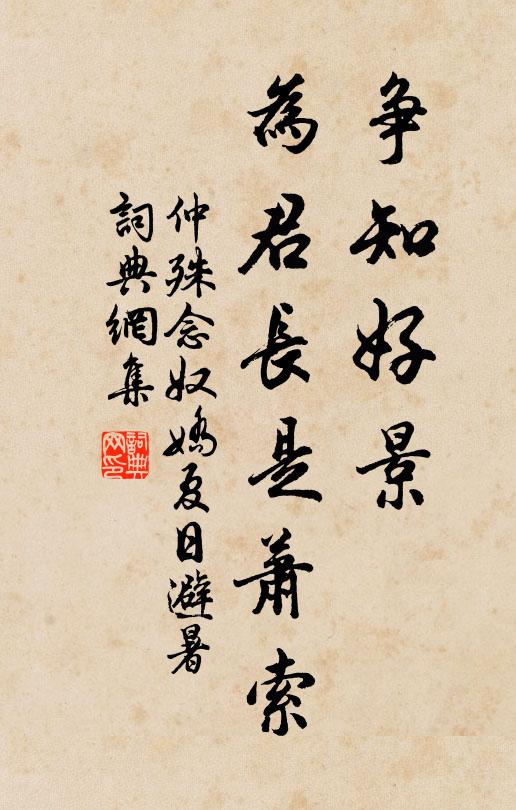 争知好景
為君長是蕭索
仲殊念奴嬌夏日避暑
詞典網集
詞典网印